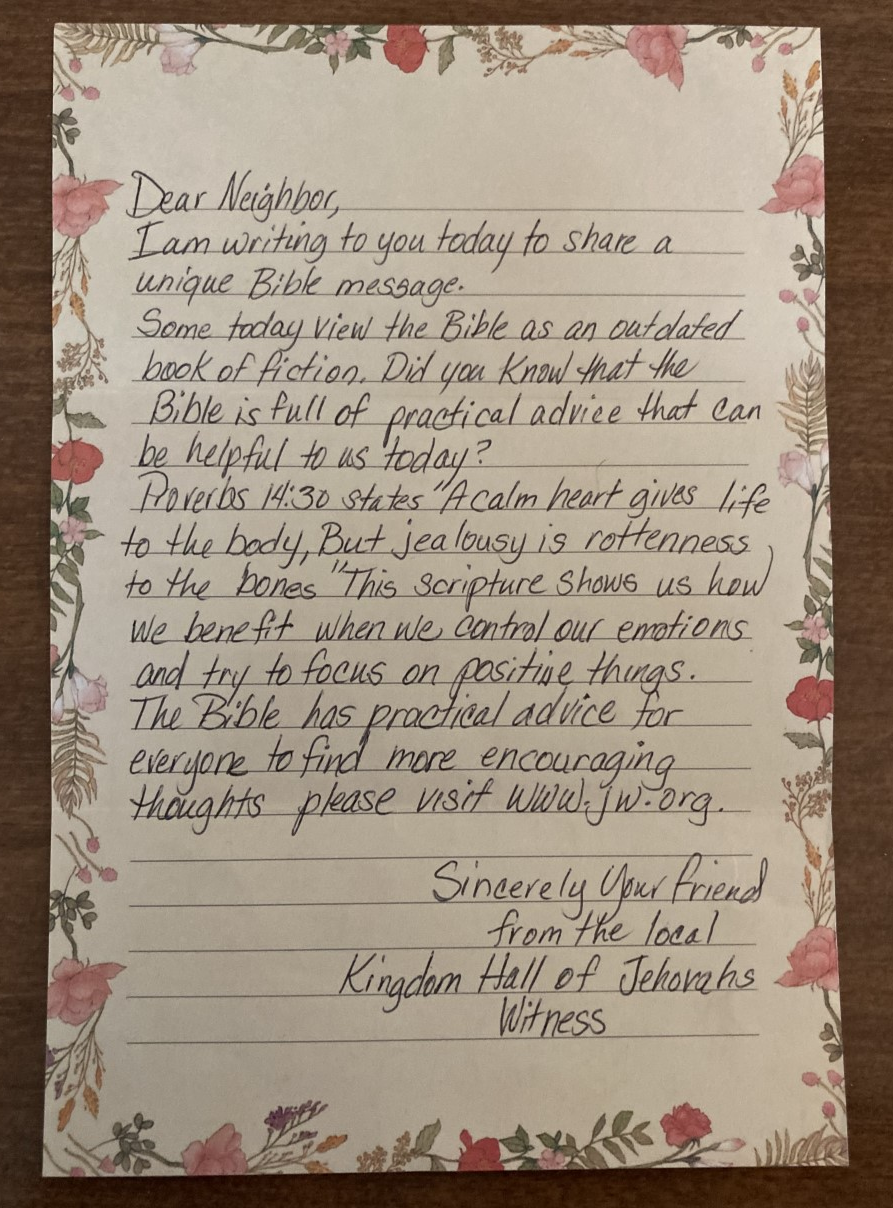 Dear Neighbor,
I am writing to you today to share a
unique Bible message.
Some today view the Bible as an outdated
book of fiction. Did you Know that the
Bible is full of practical advice that can
be helpful to us today?
Proverbs 14:30 states "A calm heart gives life
to the body, But jealousy is rottenness
to the bones" This scripture shows us how
we benefit when we control our emotions
and try to focus on positive things.
The Bible has practical advice for
everyone to find more encouraging
thoughts please visit www.jw.org.
Sincerely Your friend
from the local
Kingdom Hall of Jehovahs
Witness